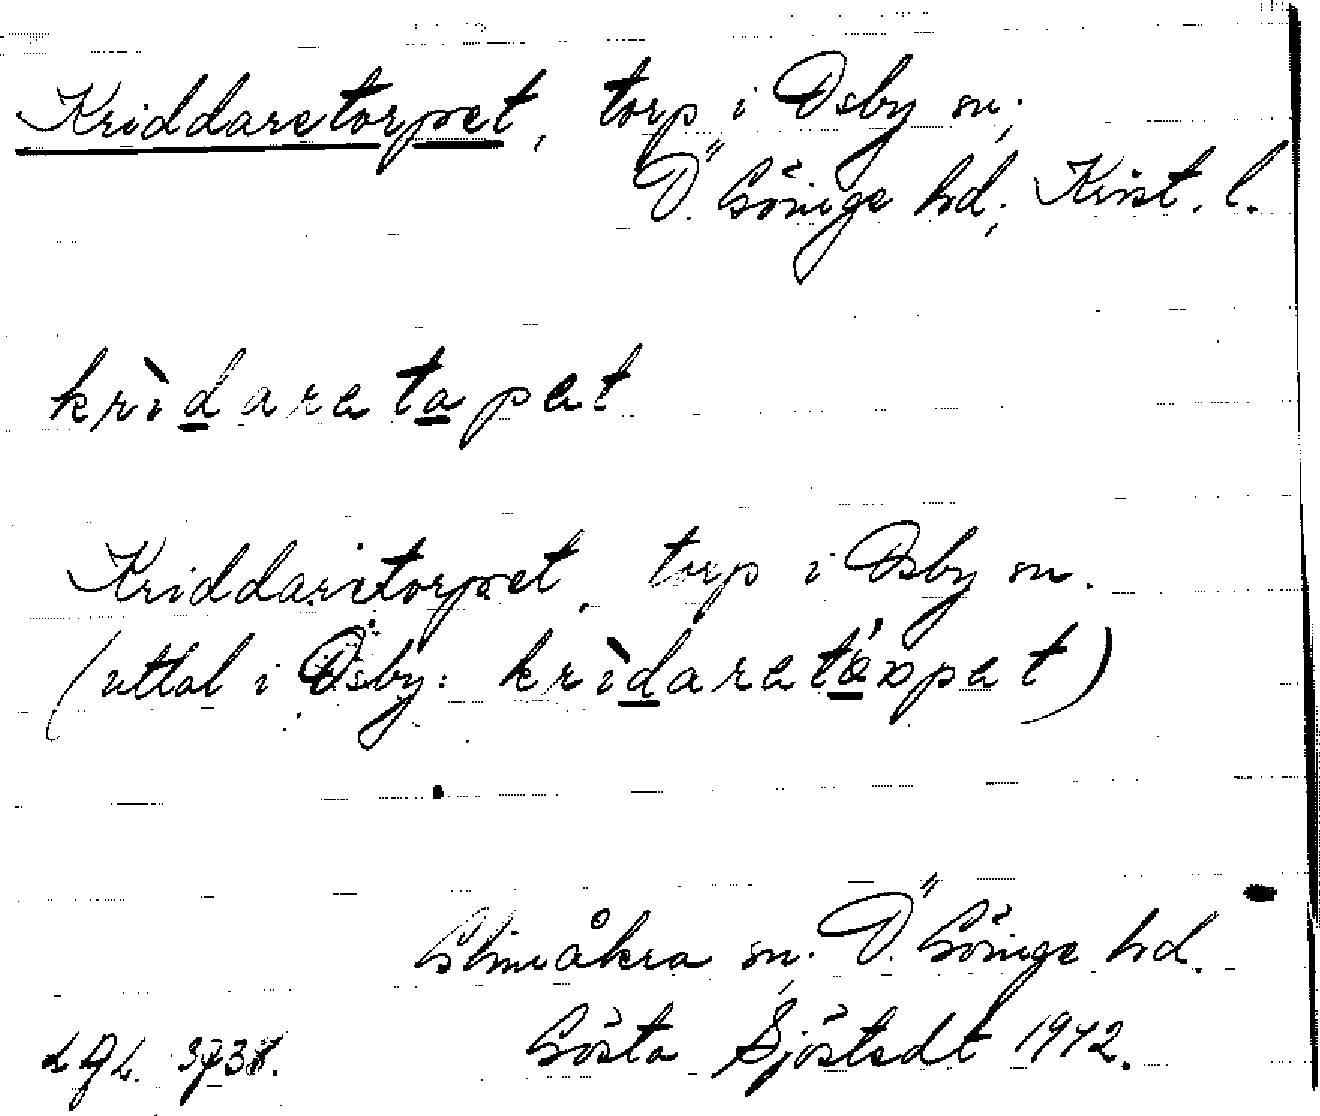 Kriddaretorpet, torp i Osby sn;
Ö. Göinge hd; Krist. l.
krìdaretapet
Kriddaretorpet, torp i Osby sn.
(uttal i Osby:
Glimåkra sn. Ö. Göinge hd.
Gösta Sjöstedt 1942.